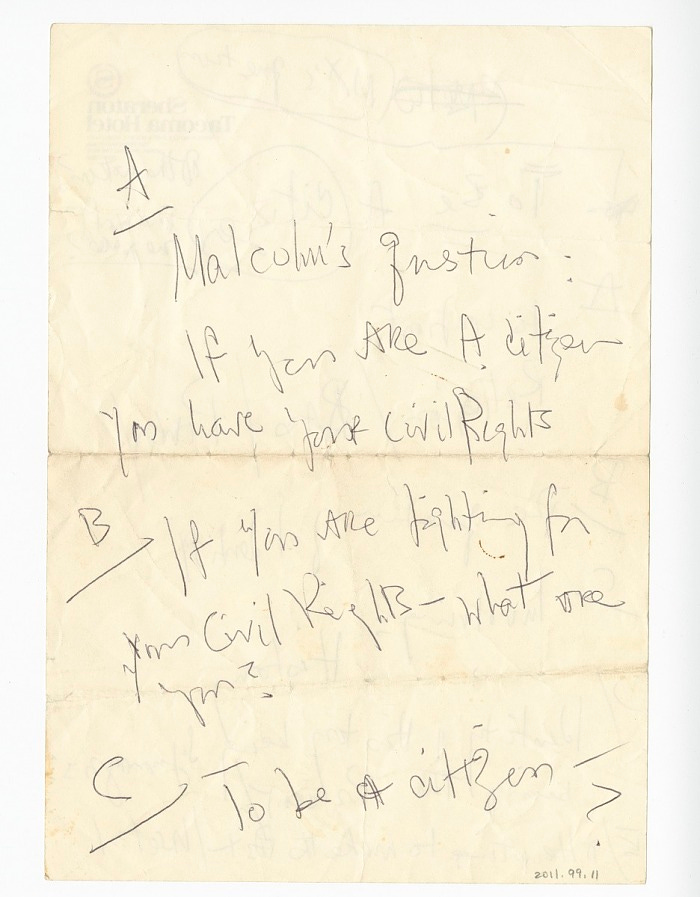 A
Malcolm's question:
If you are A citizen
you have your Civil Rights
B If you are fighting for
your Civil Rights - what are
you?
C To be A citizen - ?
2011.99.11